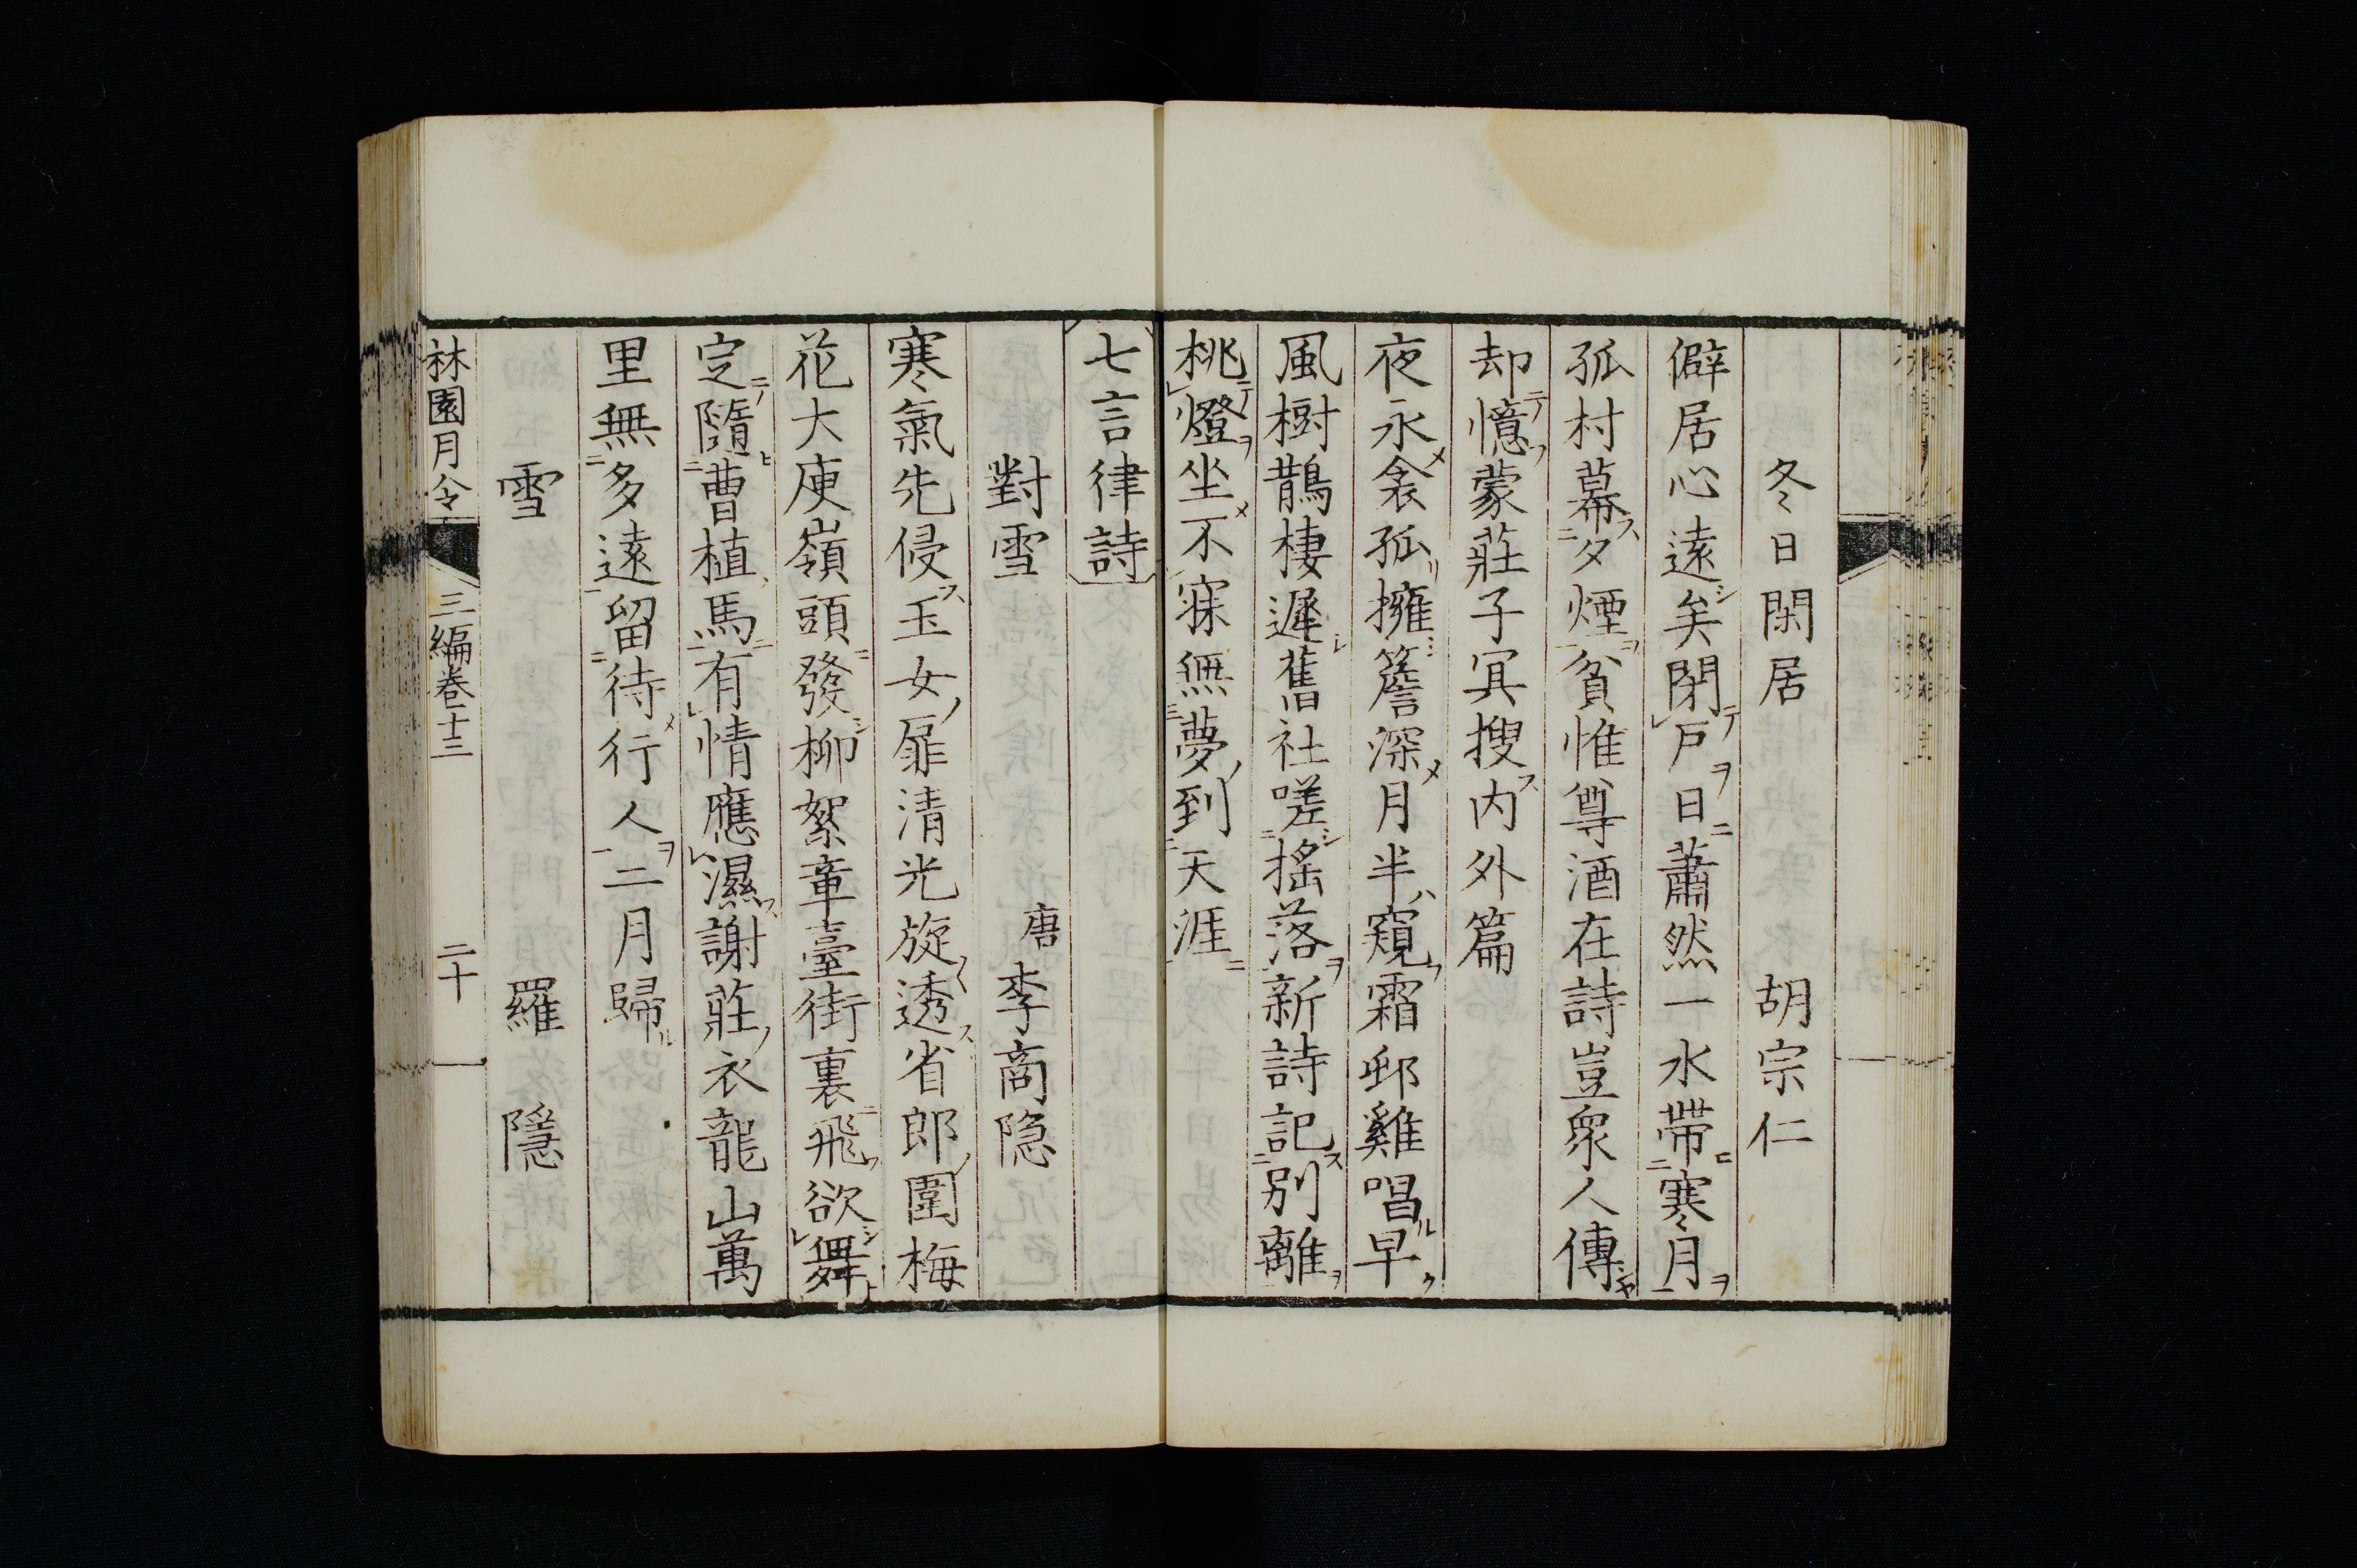 冬日閑居　胡宗仁
僻居心遠矣閉戸日蕭然一水帶寒月
孤村冪夕煙貧惟尊酒在詩豈衆人傳
却憶蒙莊子冥搜内外篇
夜永衾孤擁簷深月半窺霜郵雞唱早
風樹鵲棲遲舊社嗟搖落新詩記別離
桃燈坐不寐無夢到天涯
七言律詩
對雪　唐　李商隐
寒氣先侵玉女扉清光旋透省郎圍梅
花大庾嶺頭發柳絮章臺街裏飛欲舞
定隨曹植馬有情應濕謝莊衣龍山萬
里無多遠留待行人二月歸
雪　羅隱
林園月令　三編卷十三　二十